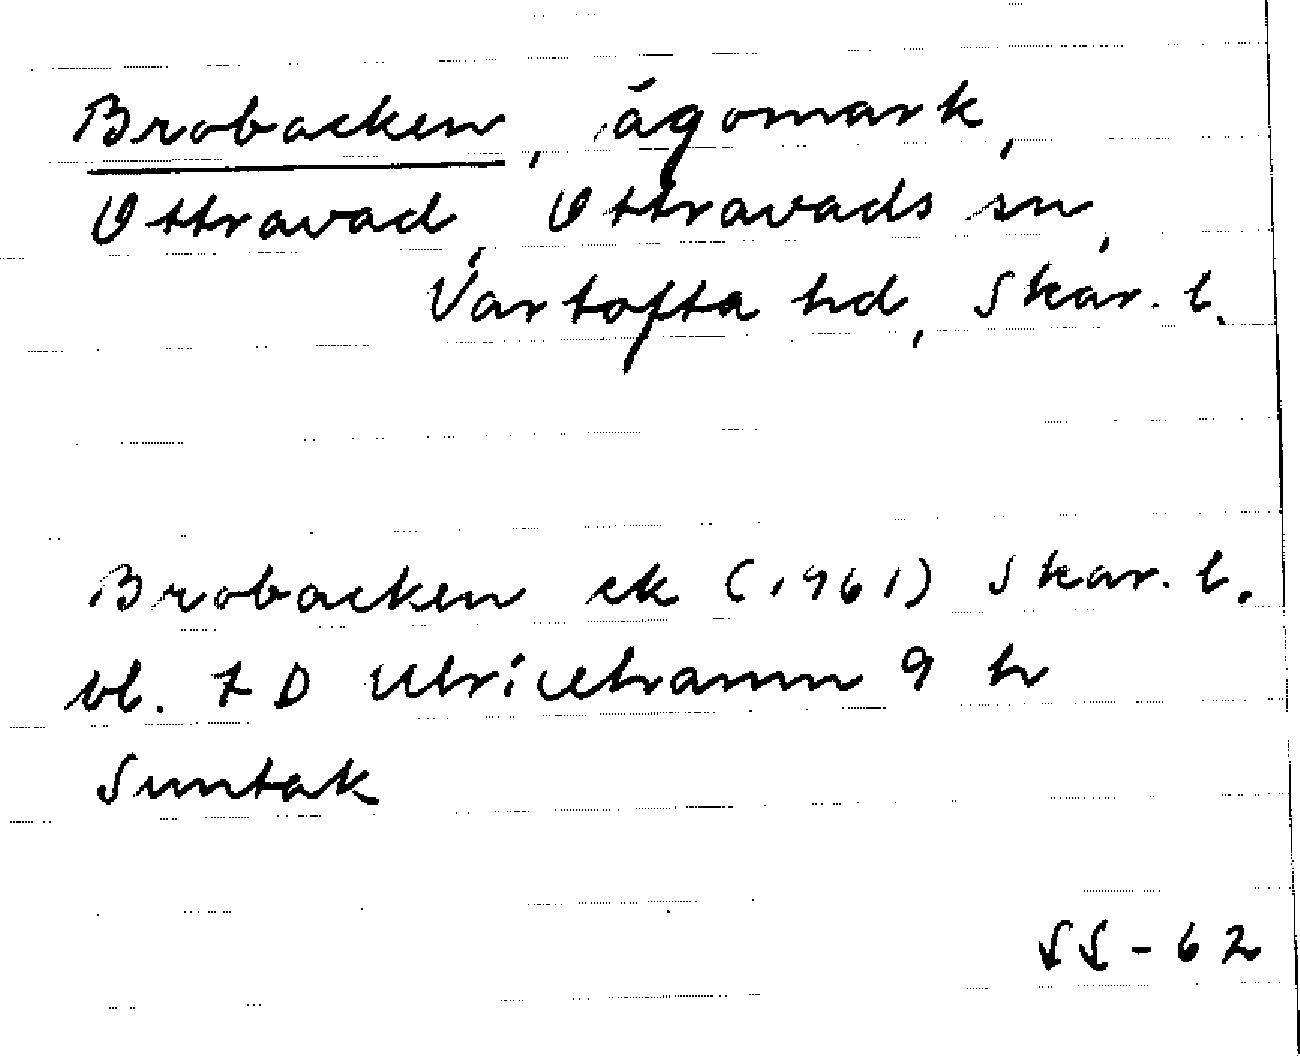 Brobacken, ägomark,
Ottravad, Ottravads sn,
Vartofta hd, Skar. l.
Brobacken ek (1961) Skar. l.
bl. 7 D Ulricehamn 9 h
Suntak
SS-62